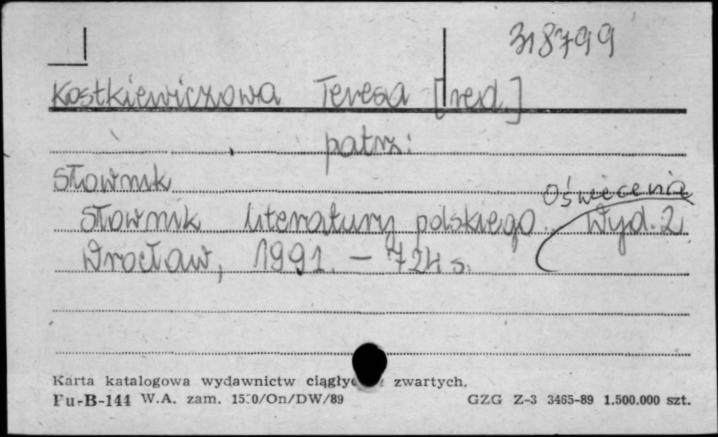 318799
Kostkiewiczowa Teresa [red.]
patrz:
Słownik
Oświecenia
Słownik literatury polskiego. Wyd. 2
Wrocław, 1991. – 724 s.
Karta katalogowa wydawnictw ciągłyc zwartych.
Pu-B-144 W.A. zam. 1530/On/DW/89 GZG Z-3 3465-89 1.500.000 szt.